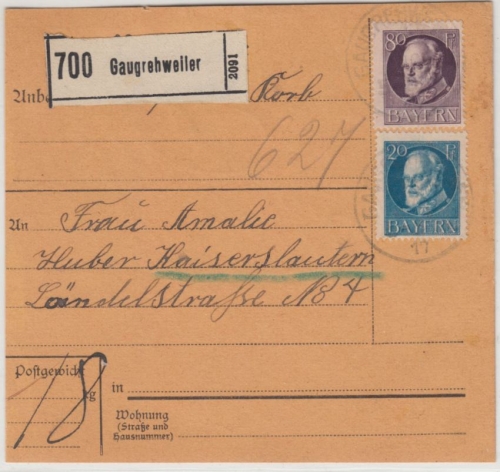 700 Gaugrehweiler 2091
Anbei Korb
627
80 Pf
BAYERN
20 Pf
BAYERN
An Frau Amalie
Huber Kaiserslautern
Ländelstraße No 4
Postgewicht
18 kg
in
Wohnung
(Straße und
Hausnummer)